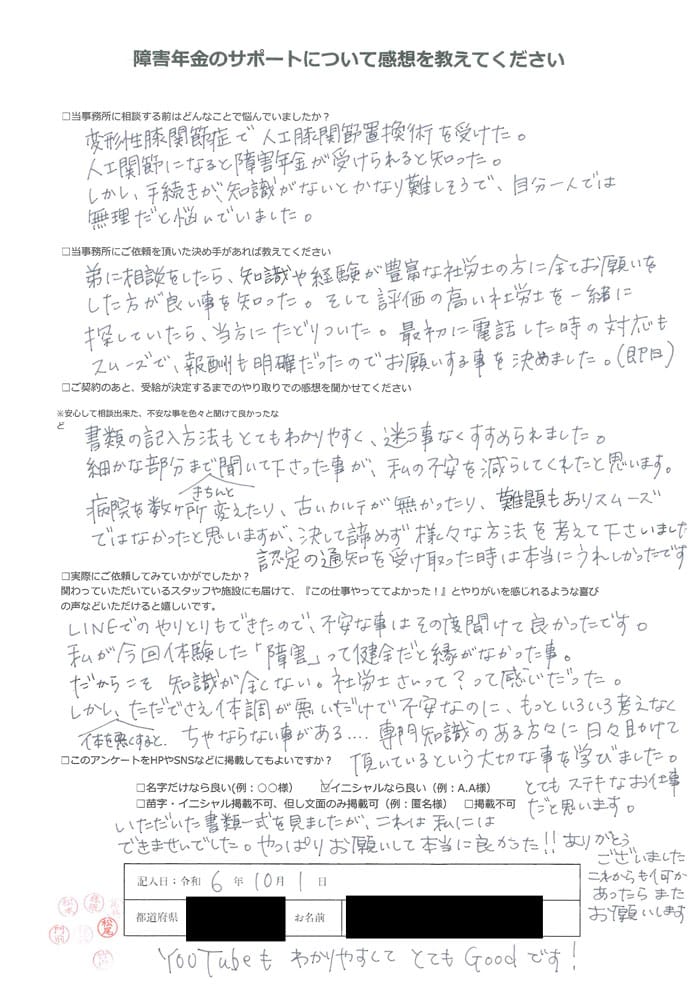 障害年金のサポートについて感想を教えてください
□当事務所に相談する前はどんなことで悩んでいましたか？
変形性膝関節症で人工膝関節置換術を受けた。
人工関節になると障害年金が受けられると知った。
しかし、手続きが、知識がないとかなり難しそうで、自分一人では
無理だと悩んでいました。
□当事務所にご依頼を頂いた決め手があれば教えてください
弟に相談をしたら、知識や経験が豊富な社労士の方に全てお願いを
した方が良い事を知った。そして評価の高い社労士を一緒に
探していたら、当方にたどりついた。最初に電話した時の対応も
スムーズで、報酬も明確だったのでお願いする事を決めました。(即日)
□ご契約のあと、受給が決定するまでのやり取りでの感想を聞かせてください
※安心して相談出来た、不安な事を色々と聞けて良かったな
ど
書類の記入方法もとてもわかりやすく、迷う事なくすすめられました。
細かな部分まで聞いて下さった事が、私の不安を減らしてくれたと思います。
きちんと
病院を数ヶ所変えたり、古いカルテが無かったり、難題もありスムーズ
ではなかったと思いますが、決して諦めず様々な方法を考えて下さいました
認定の通知を受け取った時は本当にうれしかったです
□実際にご依頼してみていかがでしたか？
関わっていただいているスタッフや施設にも届けて、『この仕事やっててよかった！』とやりがいを感じれるような喜び
の声などいただけると嬉しいです。
LINEでのやりとりもできたので、不安な事はその度聞けて良かったです。
私が今回体験した「障害」って健全だと縁がなかった事。
だからこそ 知識が全くない。社労士さいって？って感じだった。
しかし、ただでさえ体調が悪いだけで不安なのに、もっといろいろ考えなく
体を悪くすると、ちゃならない事がある‥‥専門知識のある方々に日々助けて
頂いているという大切な事を学びました。
□このアンケートをHPやSNSなどに掲載してもよいですか？
□名字だけなら良い(例：○○様) ☑イニシャルなら良い（例：A.A様）
とてもステキなお仕事
□苗字・イニシャル掲載不可、但し文面のみ掲載可（例：匿名様） □掲載不可
だと思います。
いただいた書類一式を見ましたが、これは私には
できませいでした。やっぱりお願いして本当に良かった!!ありがとう
ございました
これからも何か
あったらまた
お願いします
記入日：令和 6 年 10 月 1 日
都道府県 お名前
松尾
YouTubeもわかりやすくて とてもGoodです！